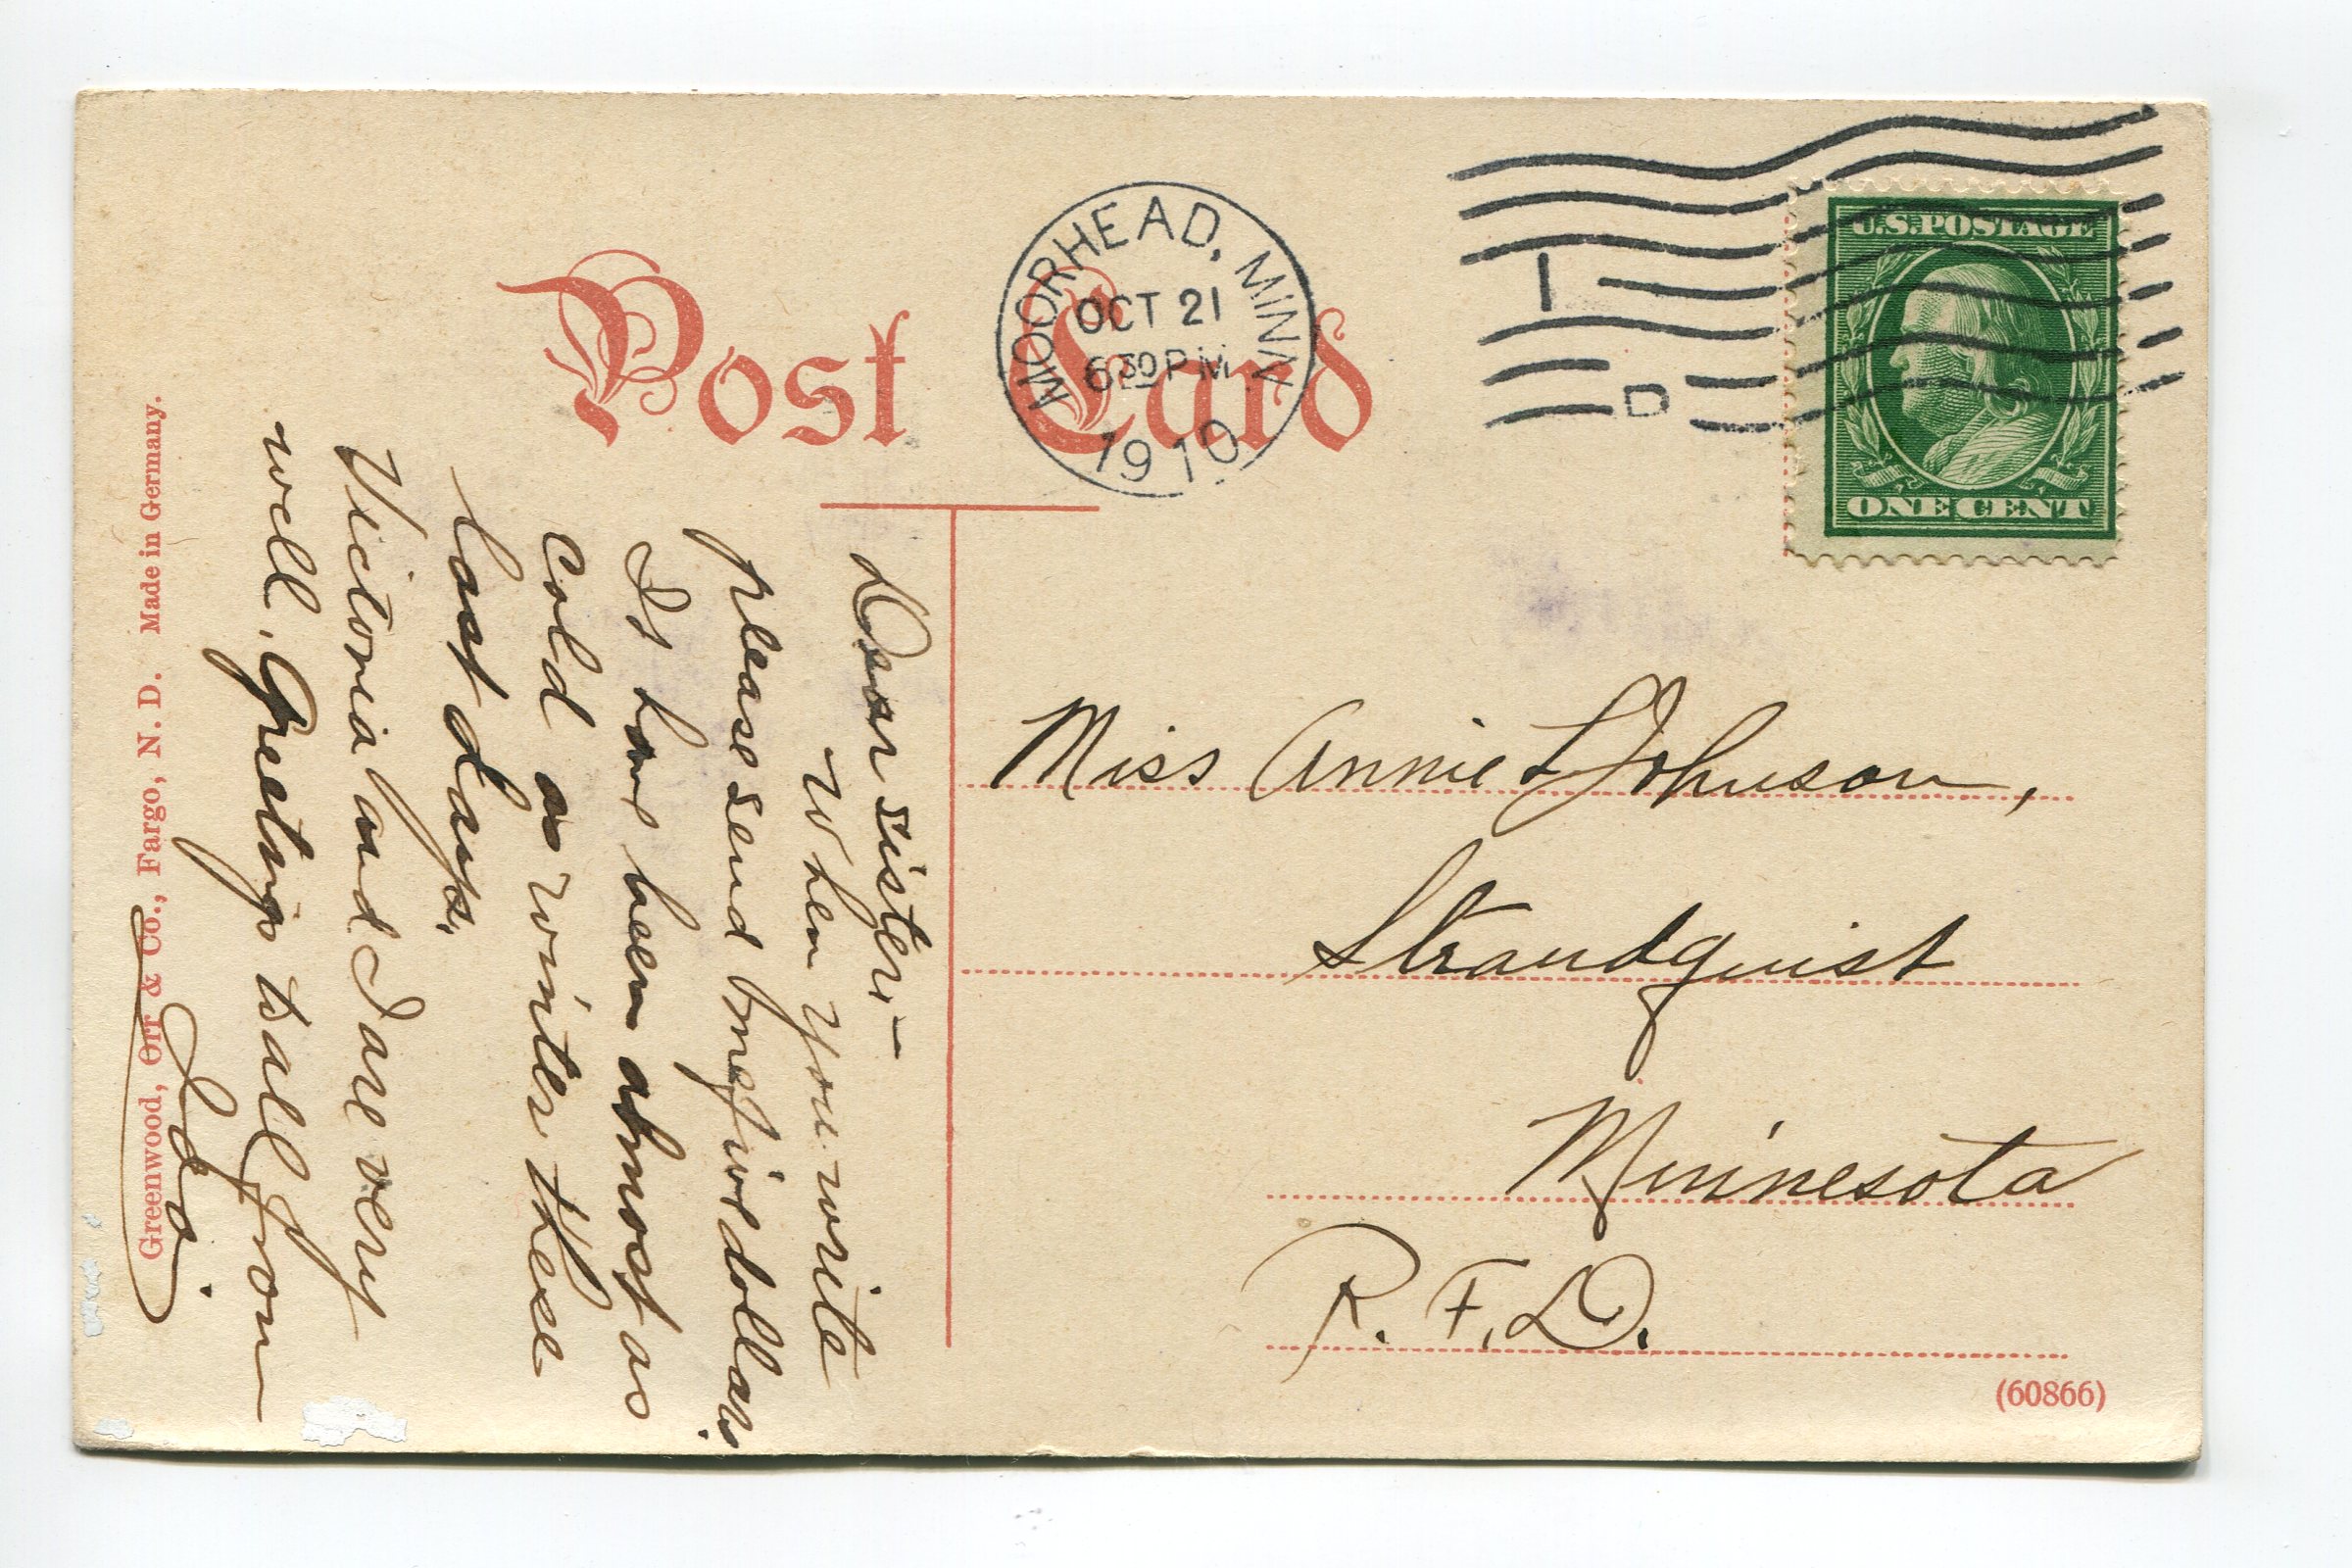 Post Card
MOORHEAD, MINN.
OCT 21
6 30 PM
1910
1
D
U.S. POSTAGE
ONE CENT
Dear sister,—
When you write
please send me five dollars.
It has been almost as
cold as winter these
last days.
Victoria and I are very
well. Greetings to all from
Ida.
Miss Annie Johnson,
Strandquist
Minnesota
R. F. D.
(60866)
Greenwood, Orr & Co., Fargo, N. D. Made in Germany.